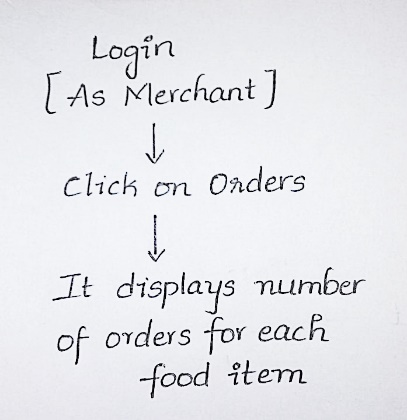 Login
[As Merchant]
↓
Click on Orders
↓
It displays number
of orders for each
food item